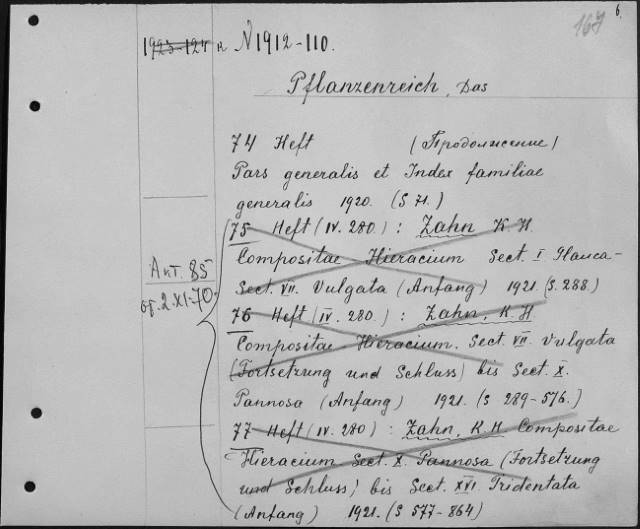 167 6.
1923-124 и N1912-110.
Pflanzenreich, Das
74 Heft (Продолжение)
Pars generalis et Index familiae
generalis 1920. (S 71.)
75 Heft (IV. 280.) : Zahn K. H.
Compositae Hieracium Sect. I Glauca-
Sect. VII. Vulgata (Anfang) 1921. (S. 288)
Акт. 85
от. 2.XI-70.
76 Heft (IV. 280.) : Zahn, K. H.
Compositae-Hieracium. Sect. VII. Vulgata
(Fortsetzung und Schluss) bis Sect. X.
Pannosa (Anfang) 1921. (S 289-576.)
77 Heft (IV. 280) : Zahn, K. H Compositae
Hieracium Sect. X. Pannosa (Fortsetzung
und Schluss) bis Sect. XVI. Tridentata
(Anfang) 1921. (S 577-864)